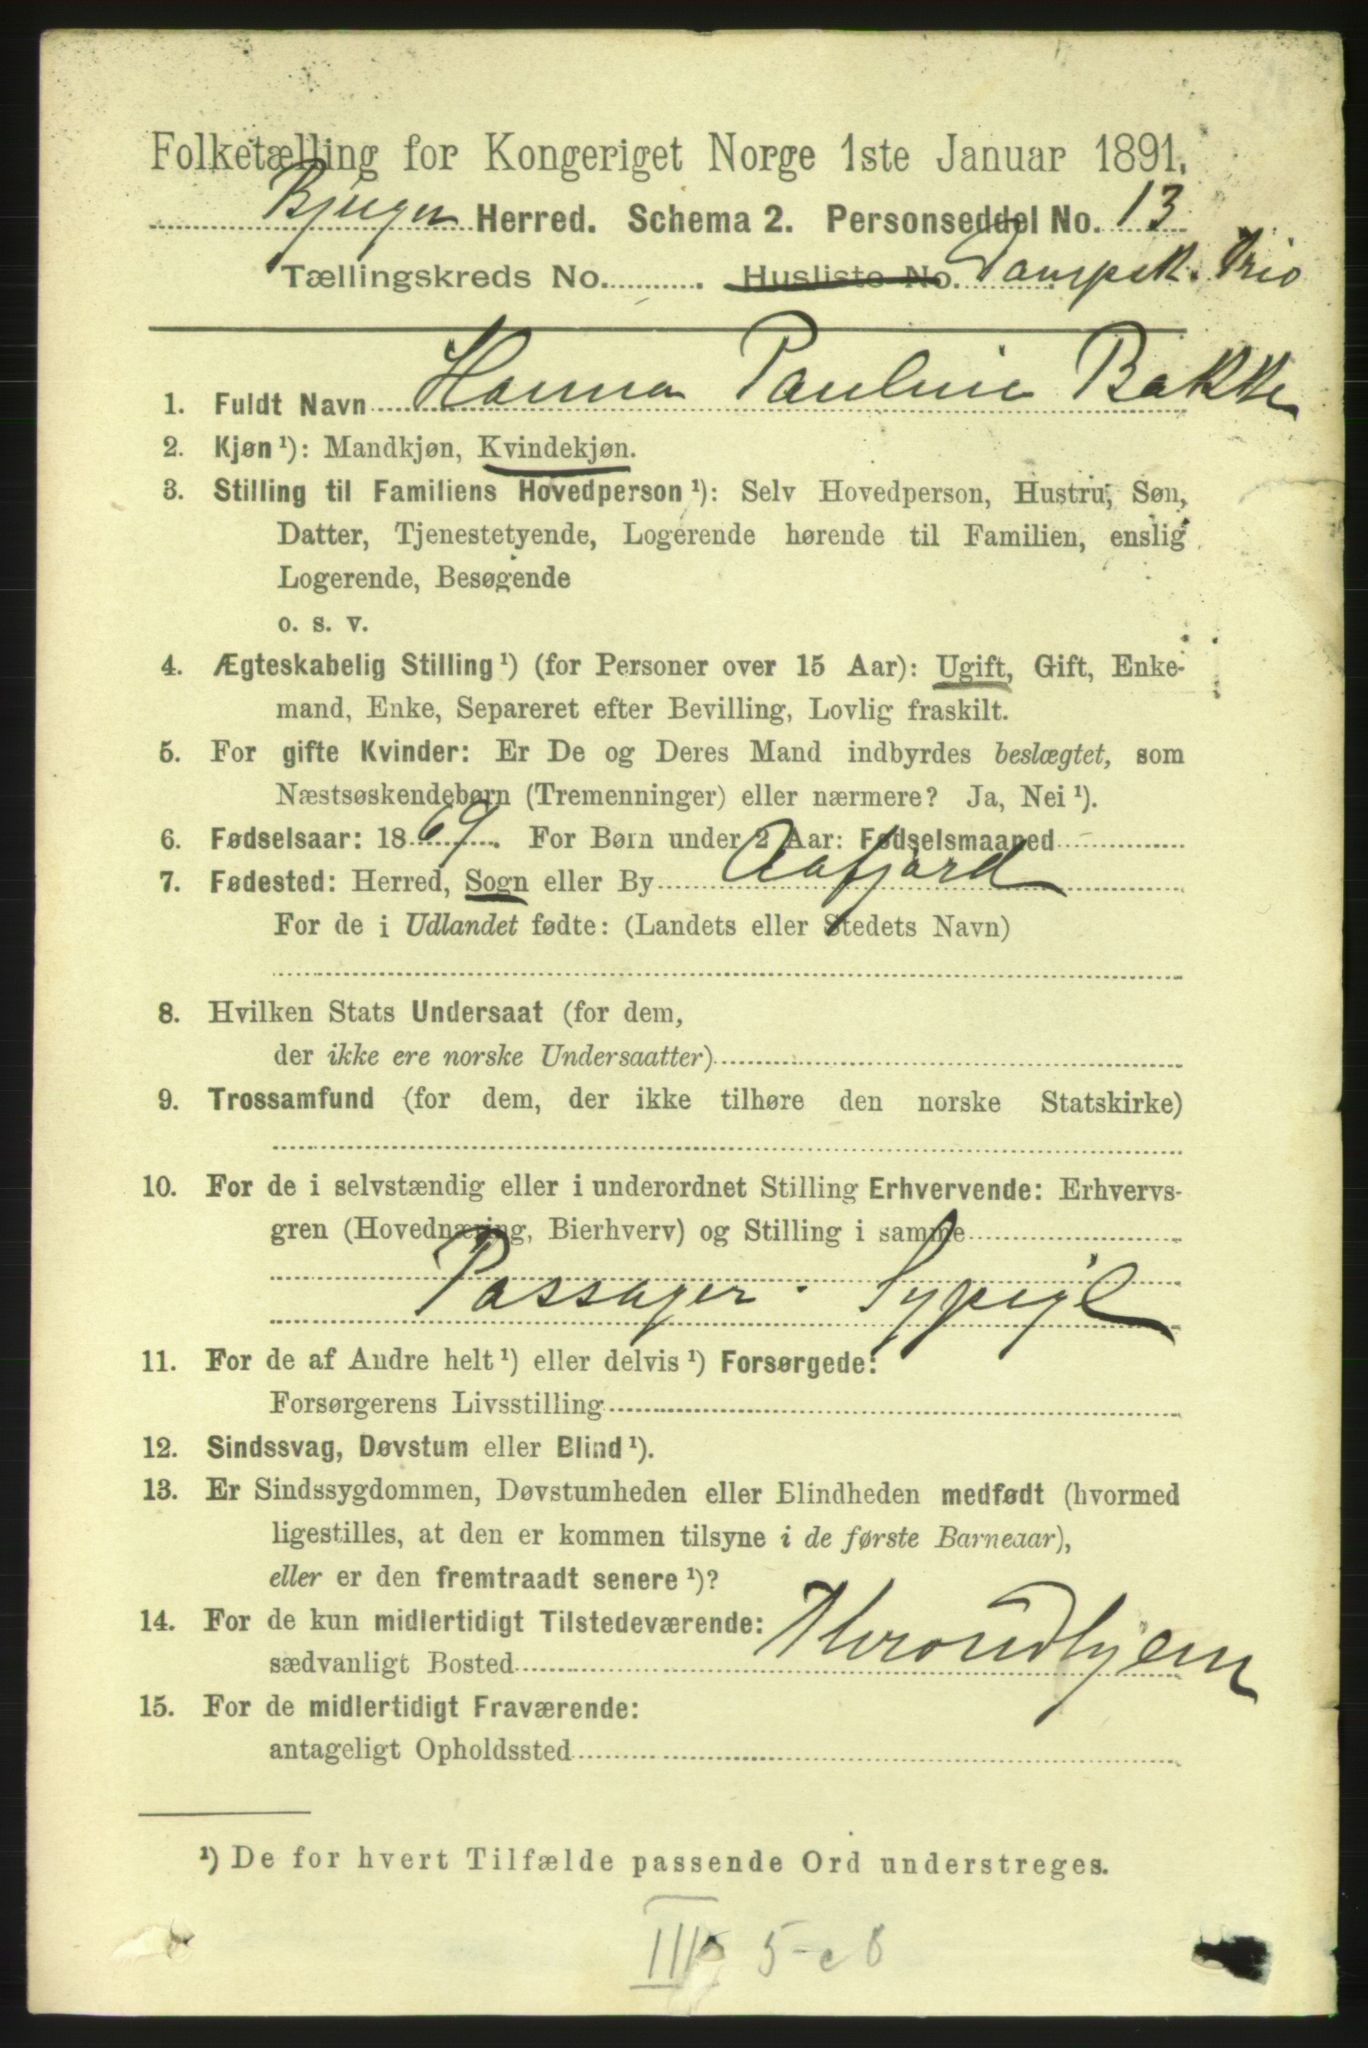 Folketælling for Kongeriget Norge 1ste Januar 1891.
Bjugn Herred. Schema 2. Personseddel No. 13
Tællingskreds No. Husliste No. Dampsk. Trio
1. Fuldt Navn Hanna Pauline Bakke
2. Kjøn ¹): Mandkjøn, Kvindekjøn.
3. Stilling til Familiens Hovedperson ¹): Selv Hovedperson, Hustru, Søn,
Datter, Tjenestetyende, Logerende hørende til Familien, enslig
Logerende, Besøgende
o. s. v.
4. Ægteskabelig Stilling ¹) (for Personer over 15 Aar): Ugift, Gift, Enke-
mand, Enke, Separeret efter Bevilling, Lovlig fraskilt.
5. For gifte Kvinder: Er De og Deres Mand indbyrdes beslægtet, som
Næstsøskendebørn (Tremenninger) eller nærmere? Ja, Nei ¹).
6. Fødselsaar: 1869. For Børn under 2 Aar: Fødselsmaaned
7. Fødested: Herred, Sogn eller By Aafjord
For de i Udlandet fødte: (Landets eller Stedets Navn)
8. Hvilken Stats Undersaat (for dem,
der ikke ere norske Undersaatter)
9. Trossamfund (for dem, der ikke tilhøre den norske Statskirke)
10. For de i selvstændig eller i underordnet Stilling Erhvervende: Erhvervs-
gren (Hovednæring, Bierhverv) og Stilling i samme
Passager. Sypige
11. For de af Andre helt ¹) eller delvis ¹) Forsørgede:
Forsørgerens Livsstilling
12. Sindssvag, Døvstum eller Blind ¹).
13. Er Sindssygdommen, Døvstumheden eller Blindheden medfødt (hvormed
ligestilles, at den er kommen tilsyne i de første Barneaar),
eller er den fremtraadt senere ¹)?
14. For de kun midlertidigt Tilstedeværende:
sædvanligt Bosted Throndhjem
15. For de midlertidigt Fraværende:
antageligt Opholdssted
¹) De for hvert Tilfælde passende Ord understreges.
III